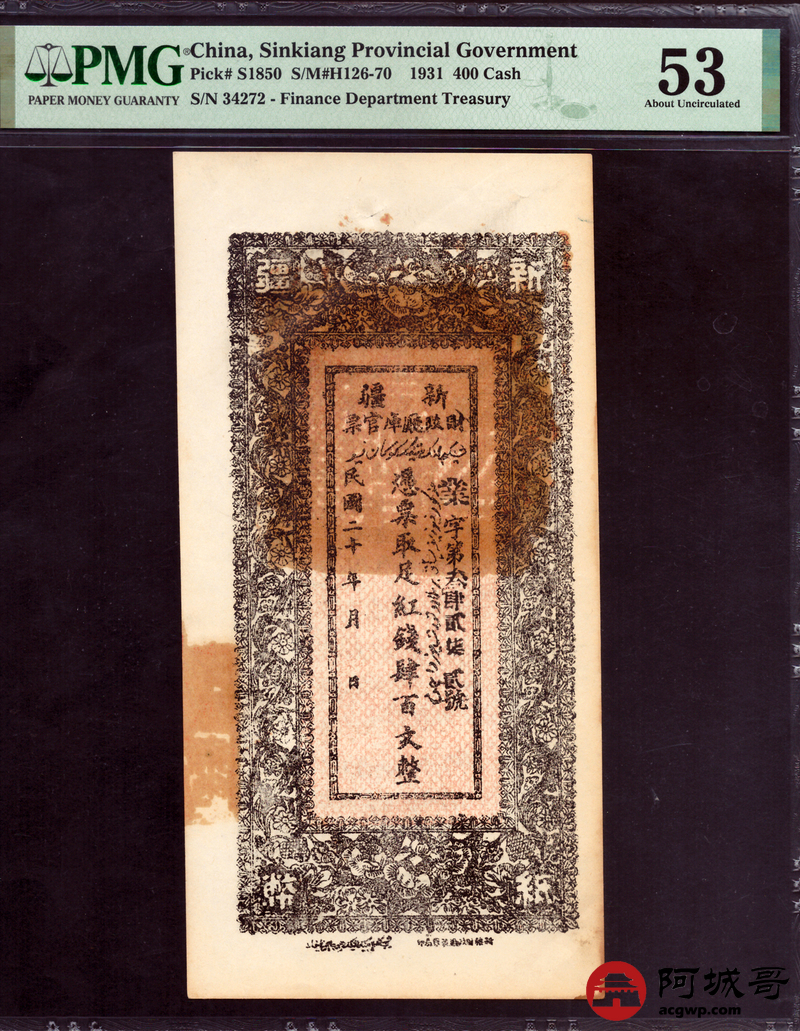 PMG® China, Sinkiang Provincial Government
Pick# S1850 S/M#H126-70 1931 400 Cash
PAPER MONEY GUARANTY S/N 34272 - Finance Department Treasury
53
About Uncirculated
新疆
新疆
財政廳庫官票
業字第叁肆貳柒貳號
憑票取足紅錢肆百文整
民國二十年 月 日
紙幣
阿城哥
acgwp.com